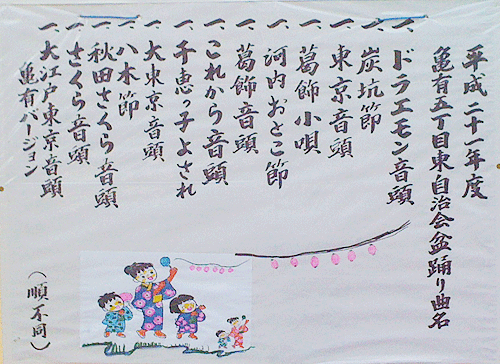 平成二十一年度
亀有五丁目東自治会盆踊り曲名
一、ドラエモン音頭
一、炭坑節
一、東京音頭
一、葛飾小唄
一、河内おとこ節
一、葛飾音頭
一、これから音頭
一、千恵っ子よされ
一、大東京音頭
一、八木節
一、秋田さくら音頭
一、さくら音頭
一、大江戸東京音頭
亀有バージョン
(順不同)